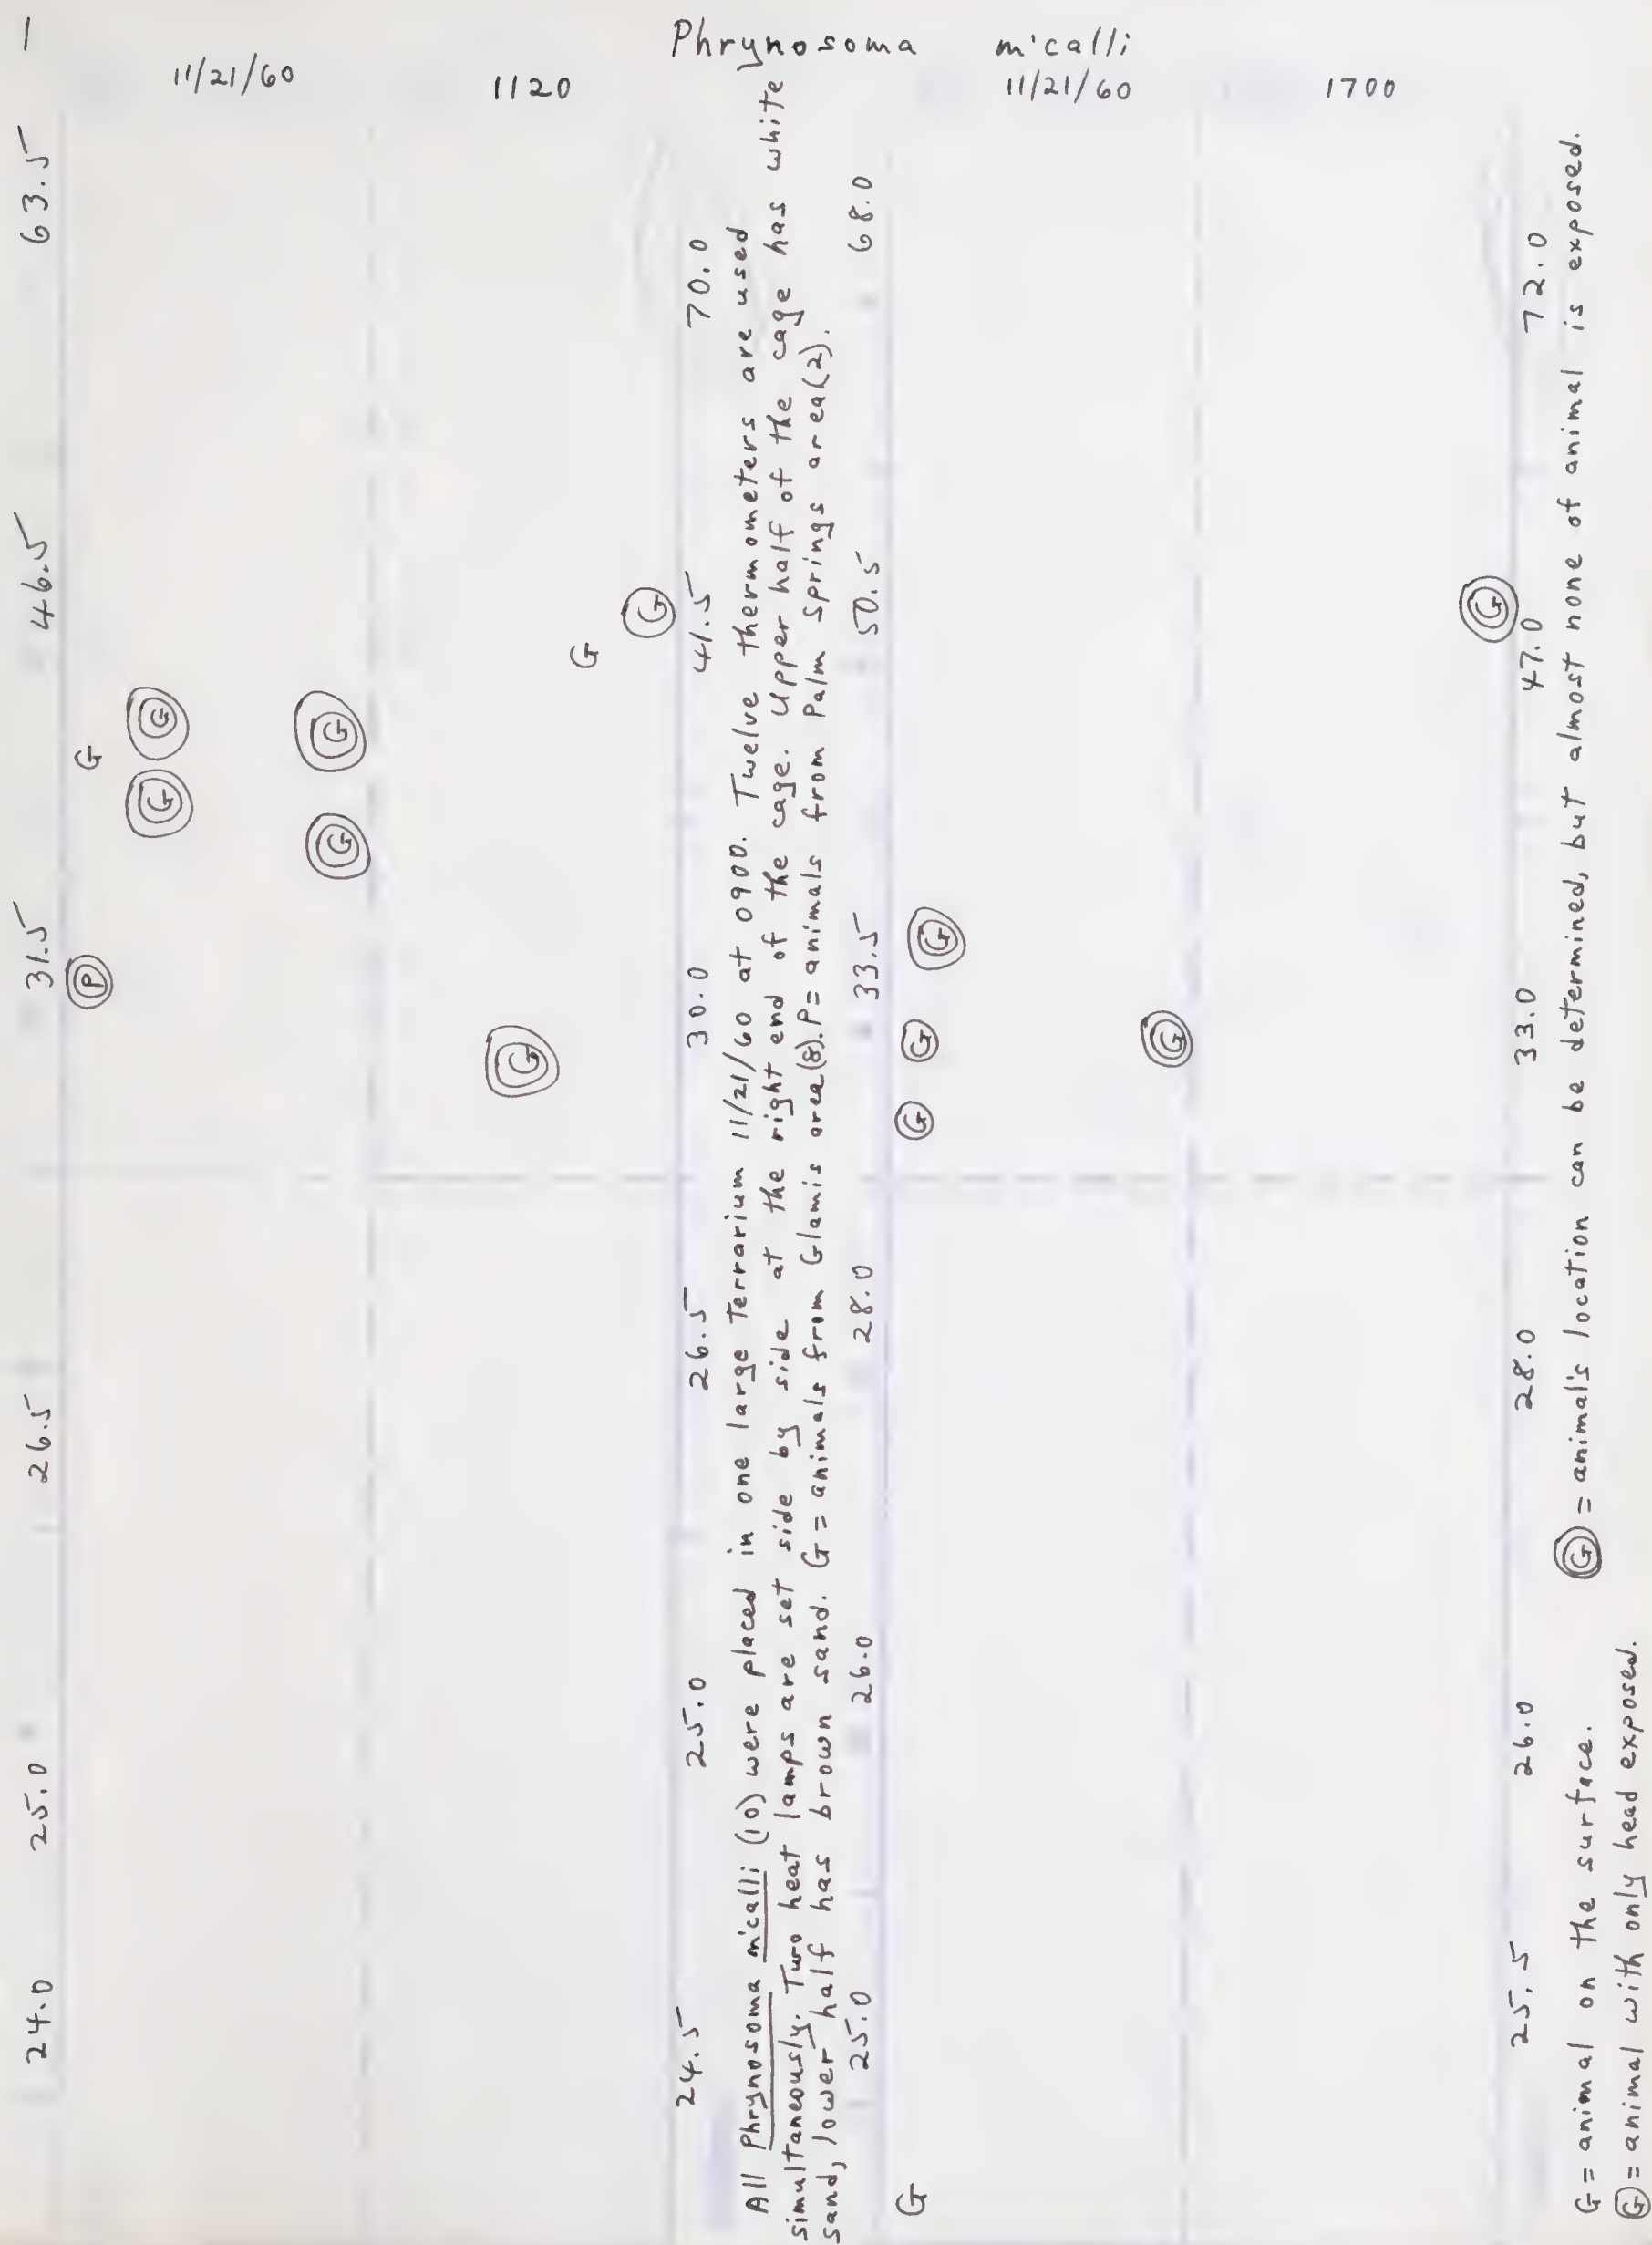 1
Phrynosoma m'calli
11/21/60 1120
24.0 25.0 26.5 31.5 46.5 63.5
P G
G G
G G
G
G
G
24.5 25.0 26.5 30.0 41.5 70.0
All Phrynosoma m'calli (10) were placed in one large terrarium 11/21/60 at 0900. Twelve thermometers are used
simultaneously. Two heat lamps are set side by side at the right end of the cage. Upper half of the cage has white
sand, lower half has brown sand. G = animals from Glamis area(8). P= animals from Palm Springs area(2).
11/21/60 1700
25.0 26.0 28.0 33.5 50.5 68.0
G G G G
G
G
25.5 26.0 28.0 33.0 47.0 72.0
G = animal on the surface. G = animal's location can be determined, but almost none of animal is exposed.
G = animal with only head exposed.